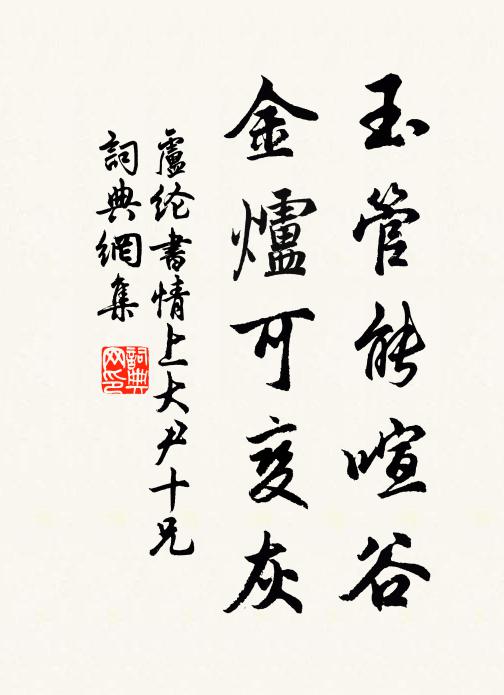 玉管能喧谷
金爐可变灰
盧纶書情上大尹十兄
詞典網集
詞典网印